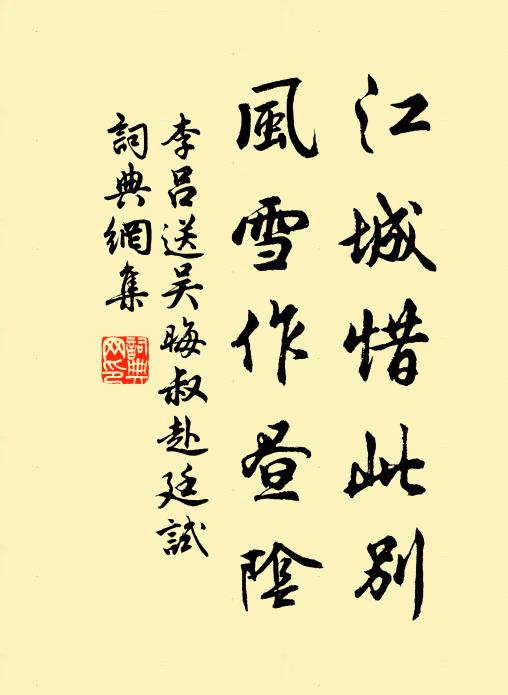 江城惜此别
風雪作昼陰
李吕送吴晦叔赴廷試
詞典網集
詞典网印